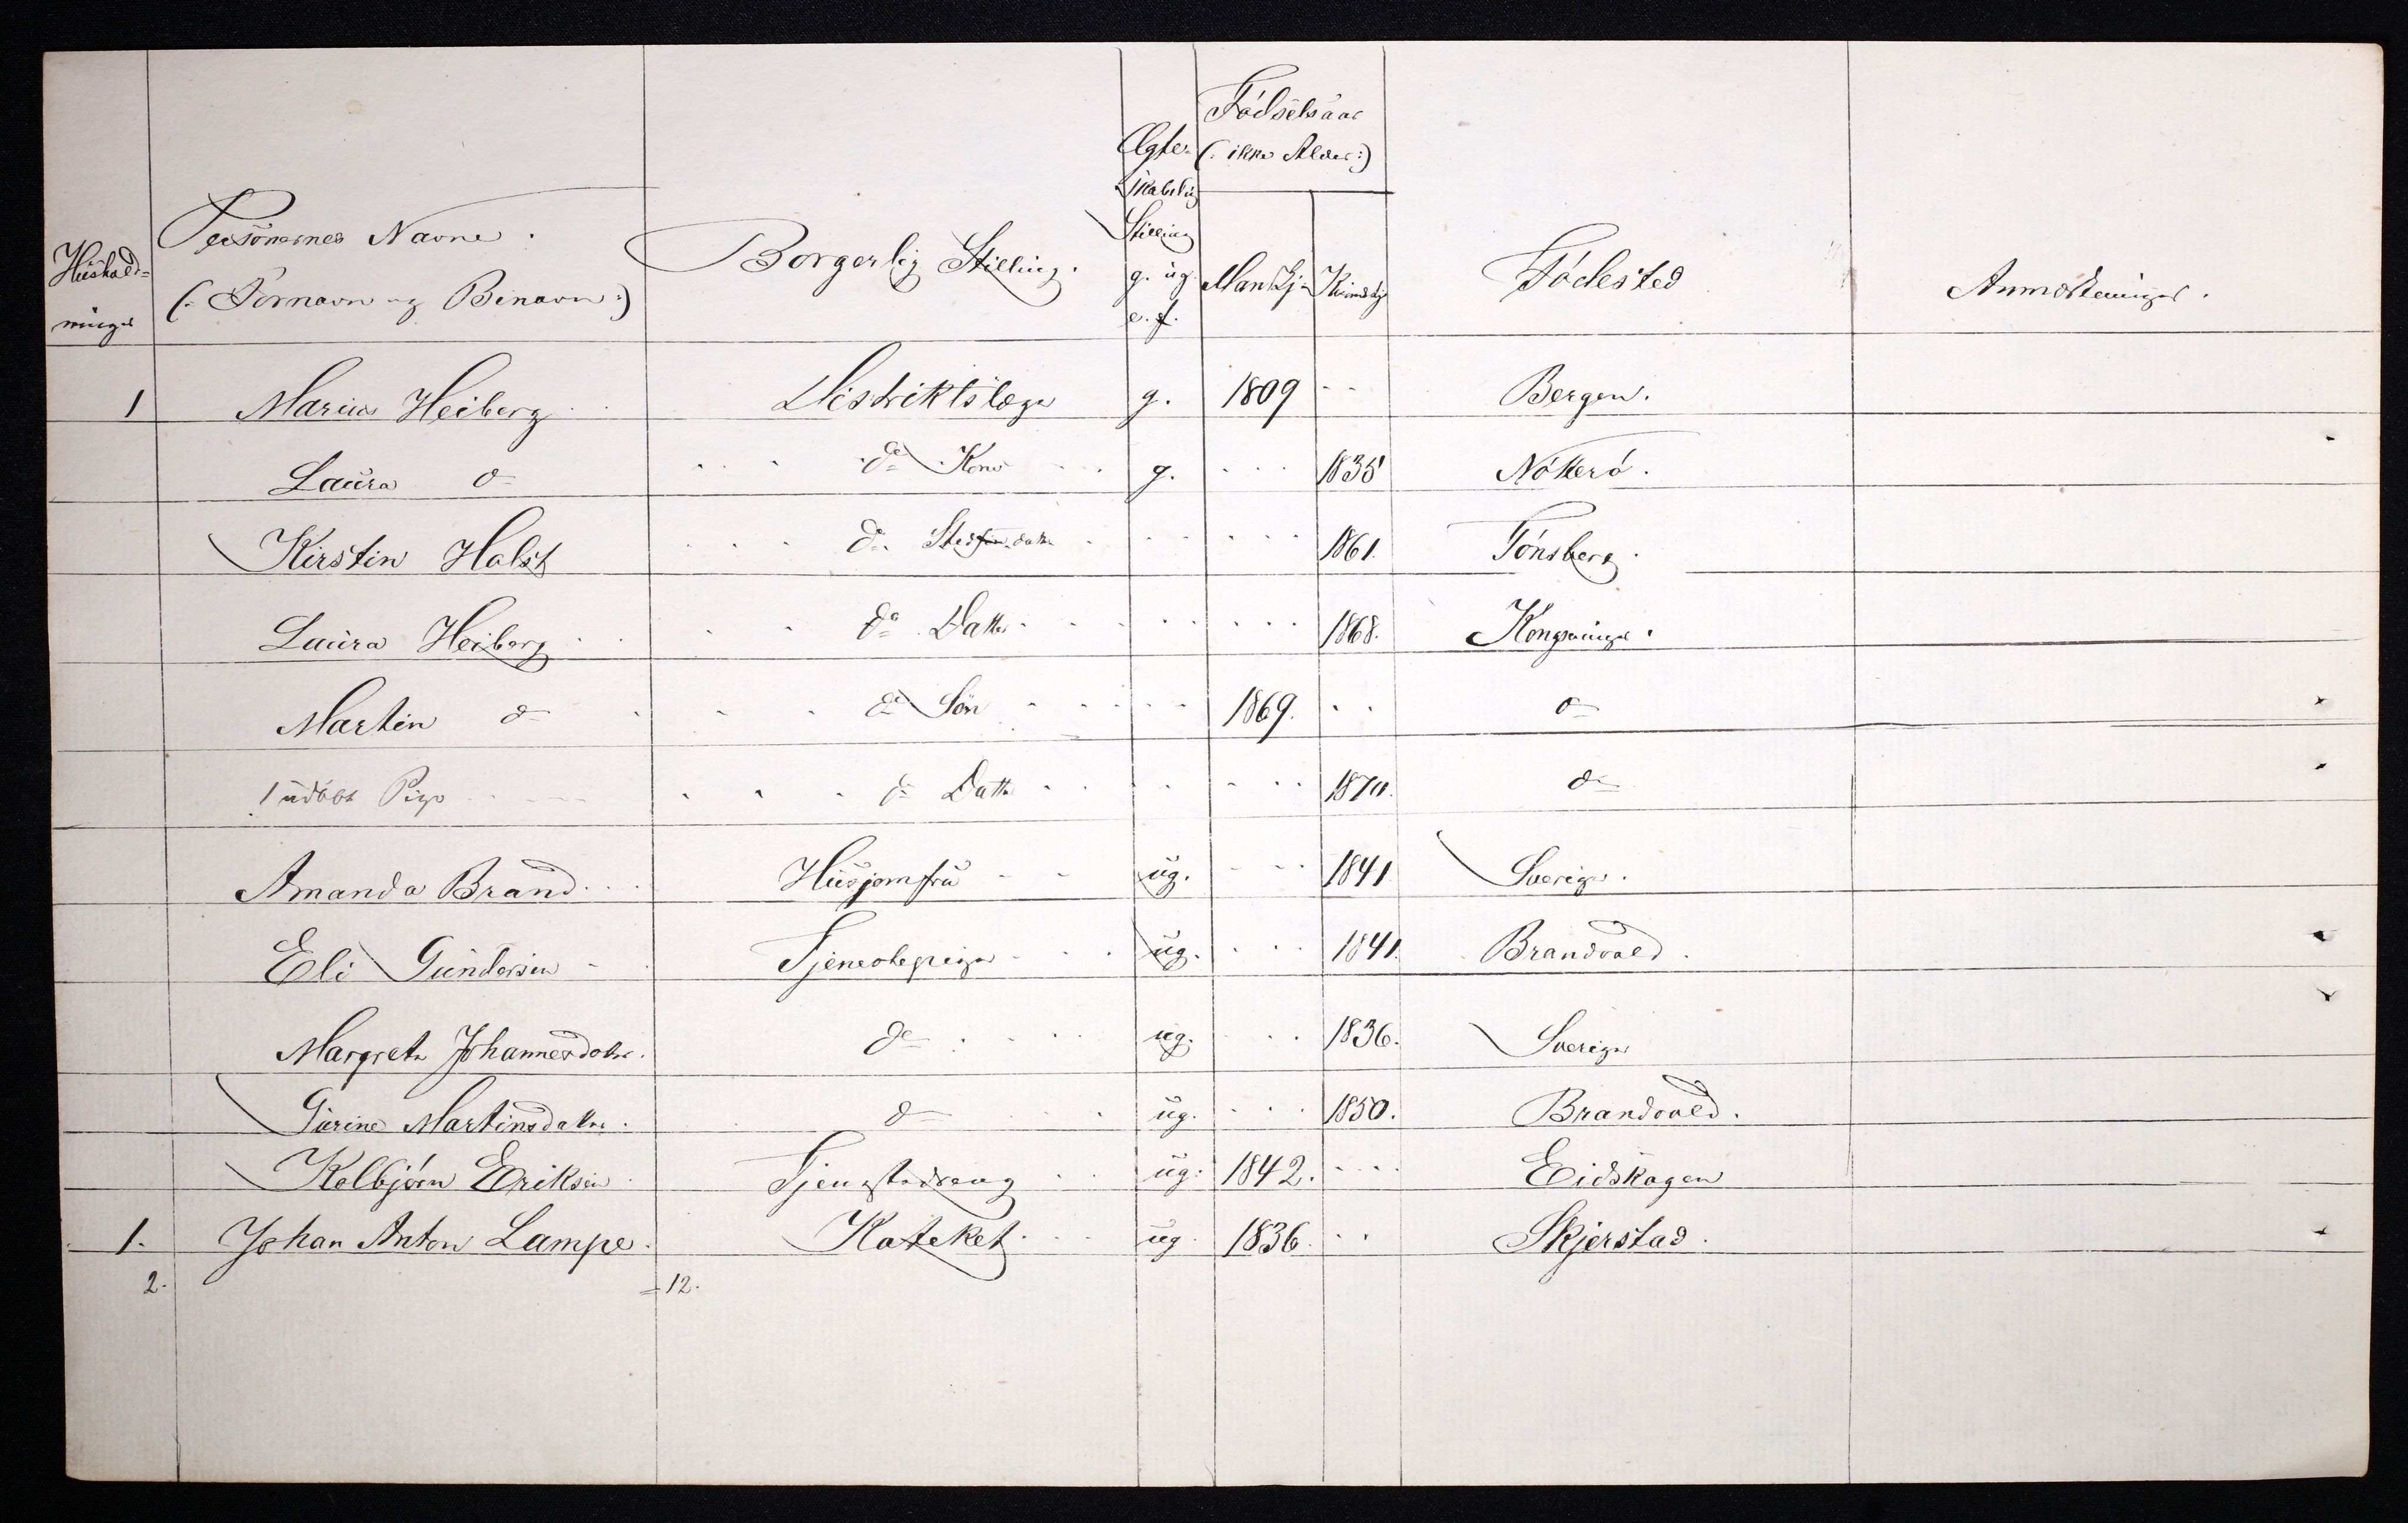 Hushold=
ninger
Personernes Navne.
(: Fornavn og Binavn :)
Borgerlig Stilling.
Ægte-
skabelig
Stilling
g. ug.
e. f.
Fødselsaar
(: ikke Alder :)
Mandkj.
Kvindekj.
Fødested
Anmærkninger.
1 Marius Heiberg Distriktslæge g. 1809 Bergen.
Laura do do Kone g. 1835 Nøtterø.
Kirstin Holst do Stedfdatter 1861. Tønsberg.
Laura Heiberg do Datter 1868. Kongsvinger.
Martin do do Søn 1869. do
1 udøbt Pige do Datter 1870. do
Amanda Brand Husjomfru ug. 1841 Sverige.
Eli Gundersen Tjenestepige ug. 1841. Brandvold.
Margrete Johannesdotter. do ug. 1836. Sverige
Gurine Martinsdatter. do ug. 1850. Brandvold.
Kolbjørn Eriksen Tjenestedreng ug. 1842. Eidskogen
1. Johan Anton Lampe. Kateket. ug. 1836. Skjerstad.
2. =12.